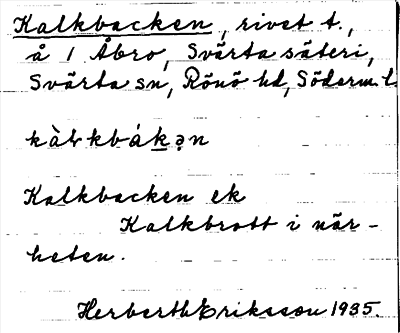 Kalkbacken, rivet t.,
å 1 Åbro, Svärta säteri,
Svärta sn, Rönö hd, Söderm. l.
kàlkbákən
Kalkbacken ek
Kalkbrott i när-
heten.
Herberth Eriksson 1935.